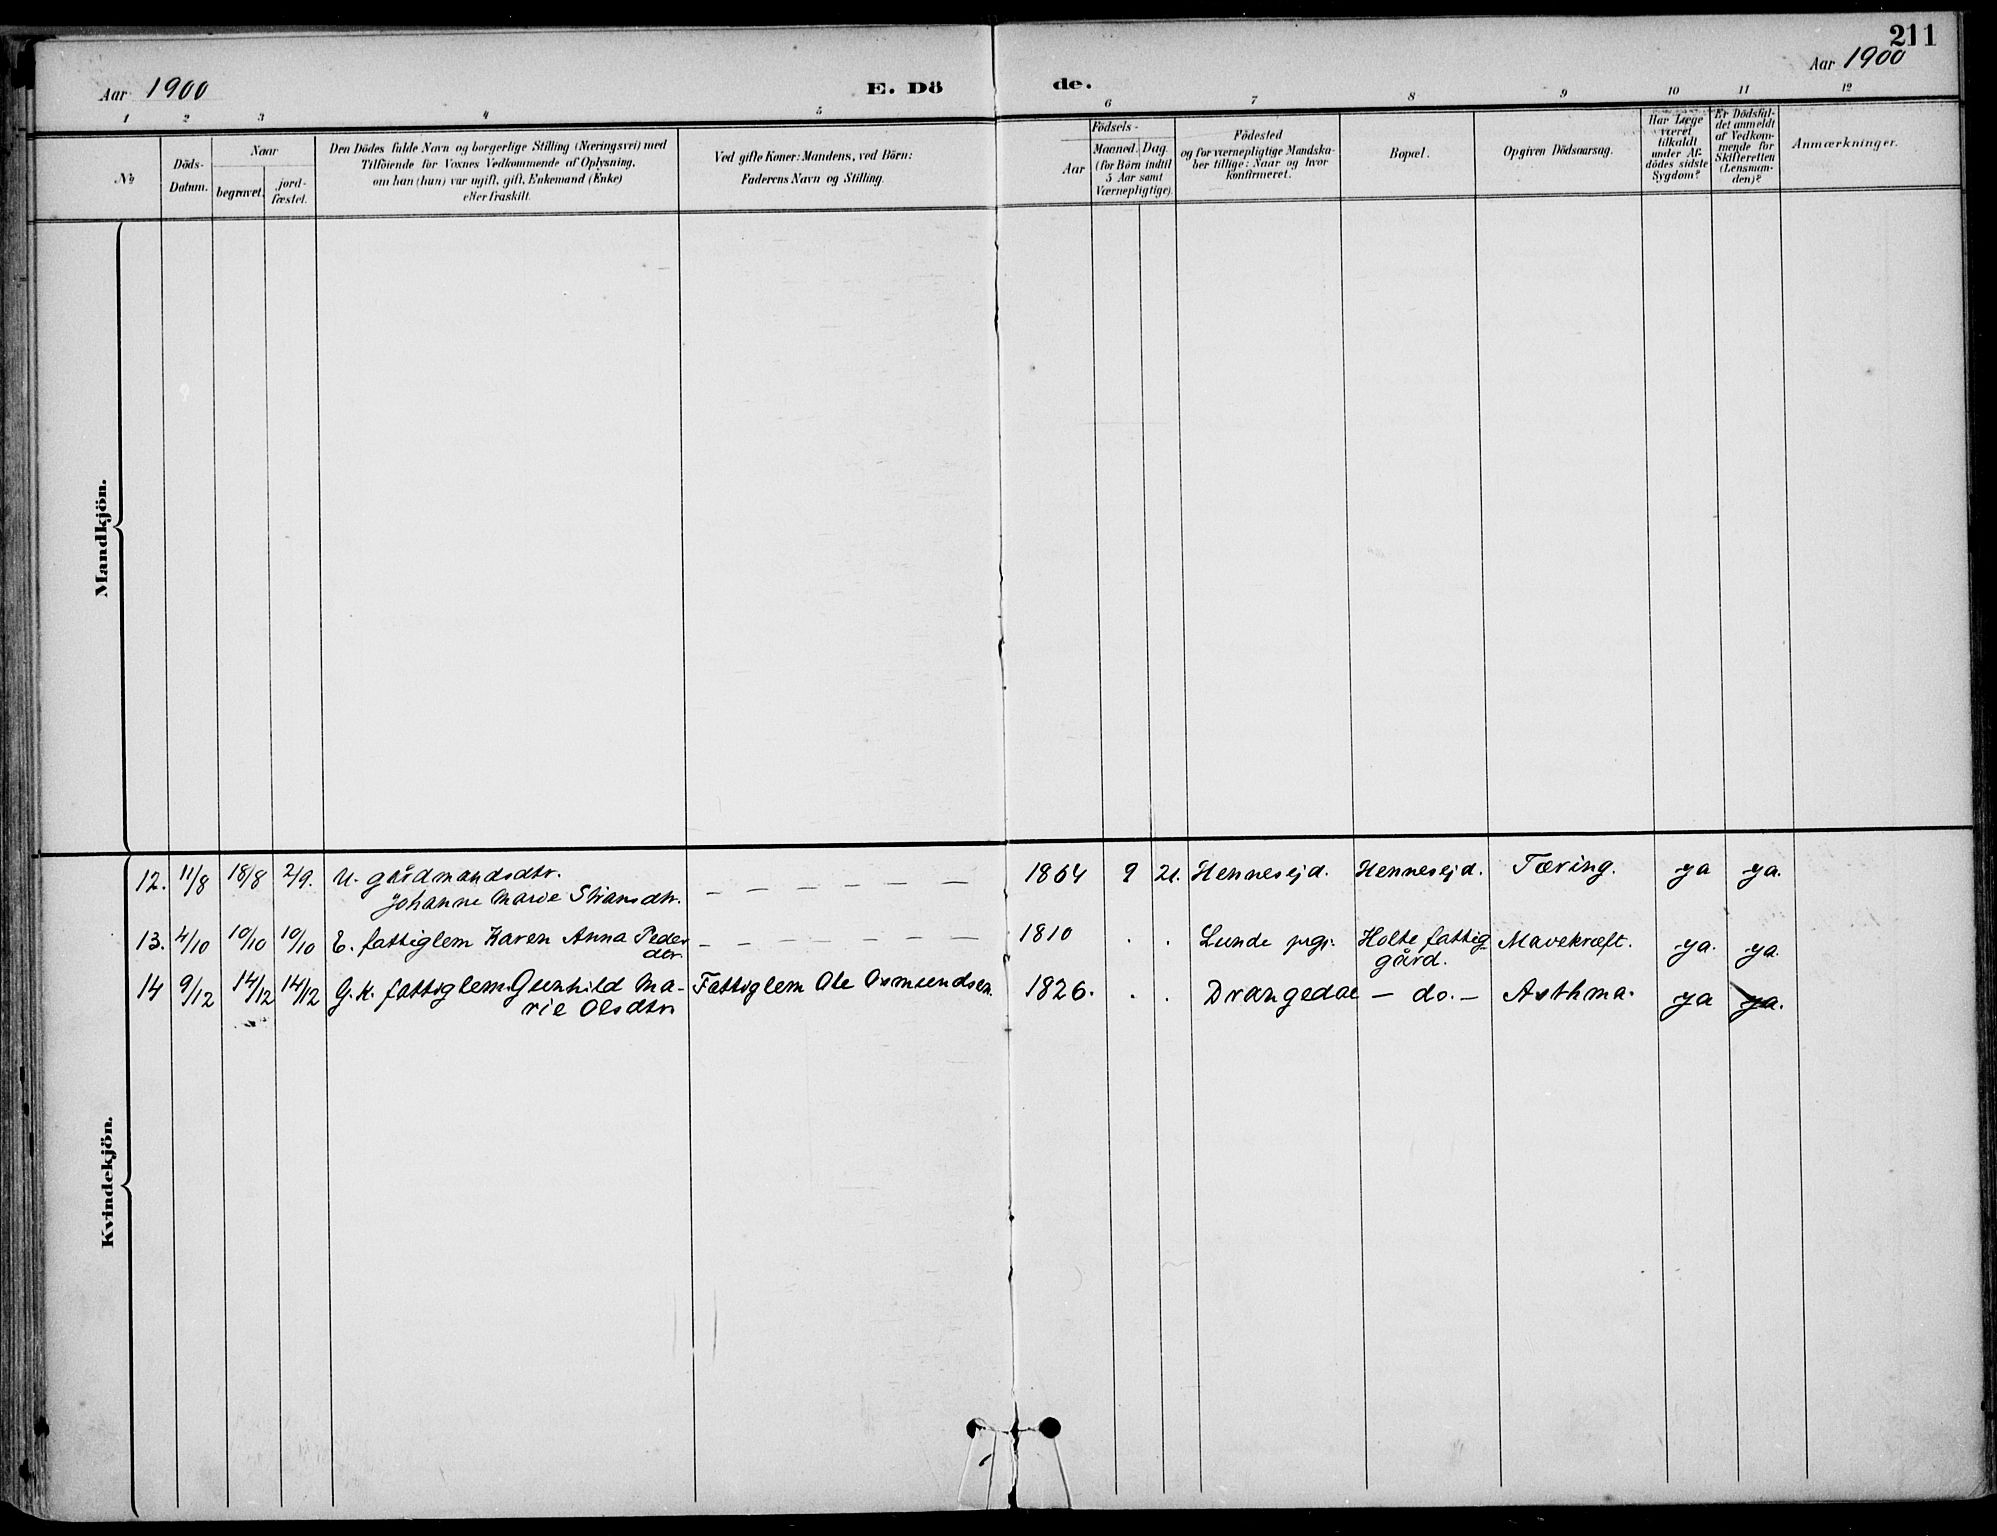 211
Aar 1900
E. Dö
de.
Aar 1900
1 2 3 4 5 6 7 8 9 10 11 12
№
Döds-
Datum.
Naar
begravet.
jord-
fæstet.
Den Dödes fulde Navn og borgerlige Stilling (Næringsvei) med
Tilföiende for Voxnes Vedkommende af Oplysning,
om han (hun) var ugift, gift, Enkemand (Enke)
eller fraskilt.
Ved gifte Koner: Mandens, ved Börn:
Faderens Navn og Stilling.
Födsels-
Aar
Maaned. Dag.
(for Börn indtil
5 Aar samt
Værnepligtige).
Födested
og for værnepligtige Mandska-
ber tillige: Naar og hvor
konfirmeret.
Bopæl.
Opgiven Dödsaarsag.
Har Læge
været
tilkaldt
under Af-
dödes sidste
Sygdom?
Er Dödsfal-
det anmeldt
af Vedkom-
mende for
Skifteretten
(Lensman-
den)?
Anmærkninger.
Mandkjön.
12. 11/8 18/8 2/9. U. gårdmandsdtr. — — — — — — 1864 9 21. Hennesejd. Hennesejd. Tæring. ya ya.
Johanne Marie
13. 4/10 10/10 10/10 E. fattiglem Karen Anna Peder — — — — — — 1810 . . Lunde prgj. Holte fattig- Mavekræft. ya. ya.
dtr. gård.
14 9/12 14/12 14/12 G. K. fattiglem Gunhild Ma- Fattiglem Ole Osmundsen. 1826. . . Drangedal — do. — Asthma. ya ya.
rie Olsdtr
Kvindekjön.